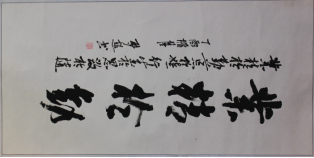 業精於勤
業精於勤荒於嬉行成於思毀於隨
丁酉